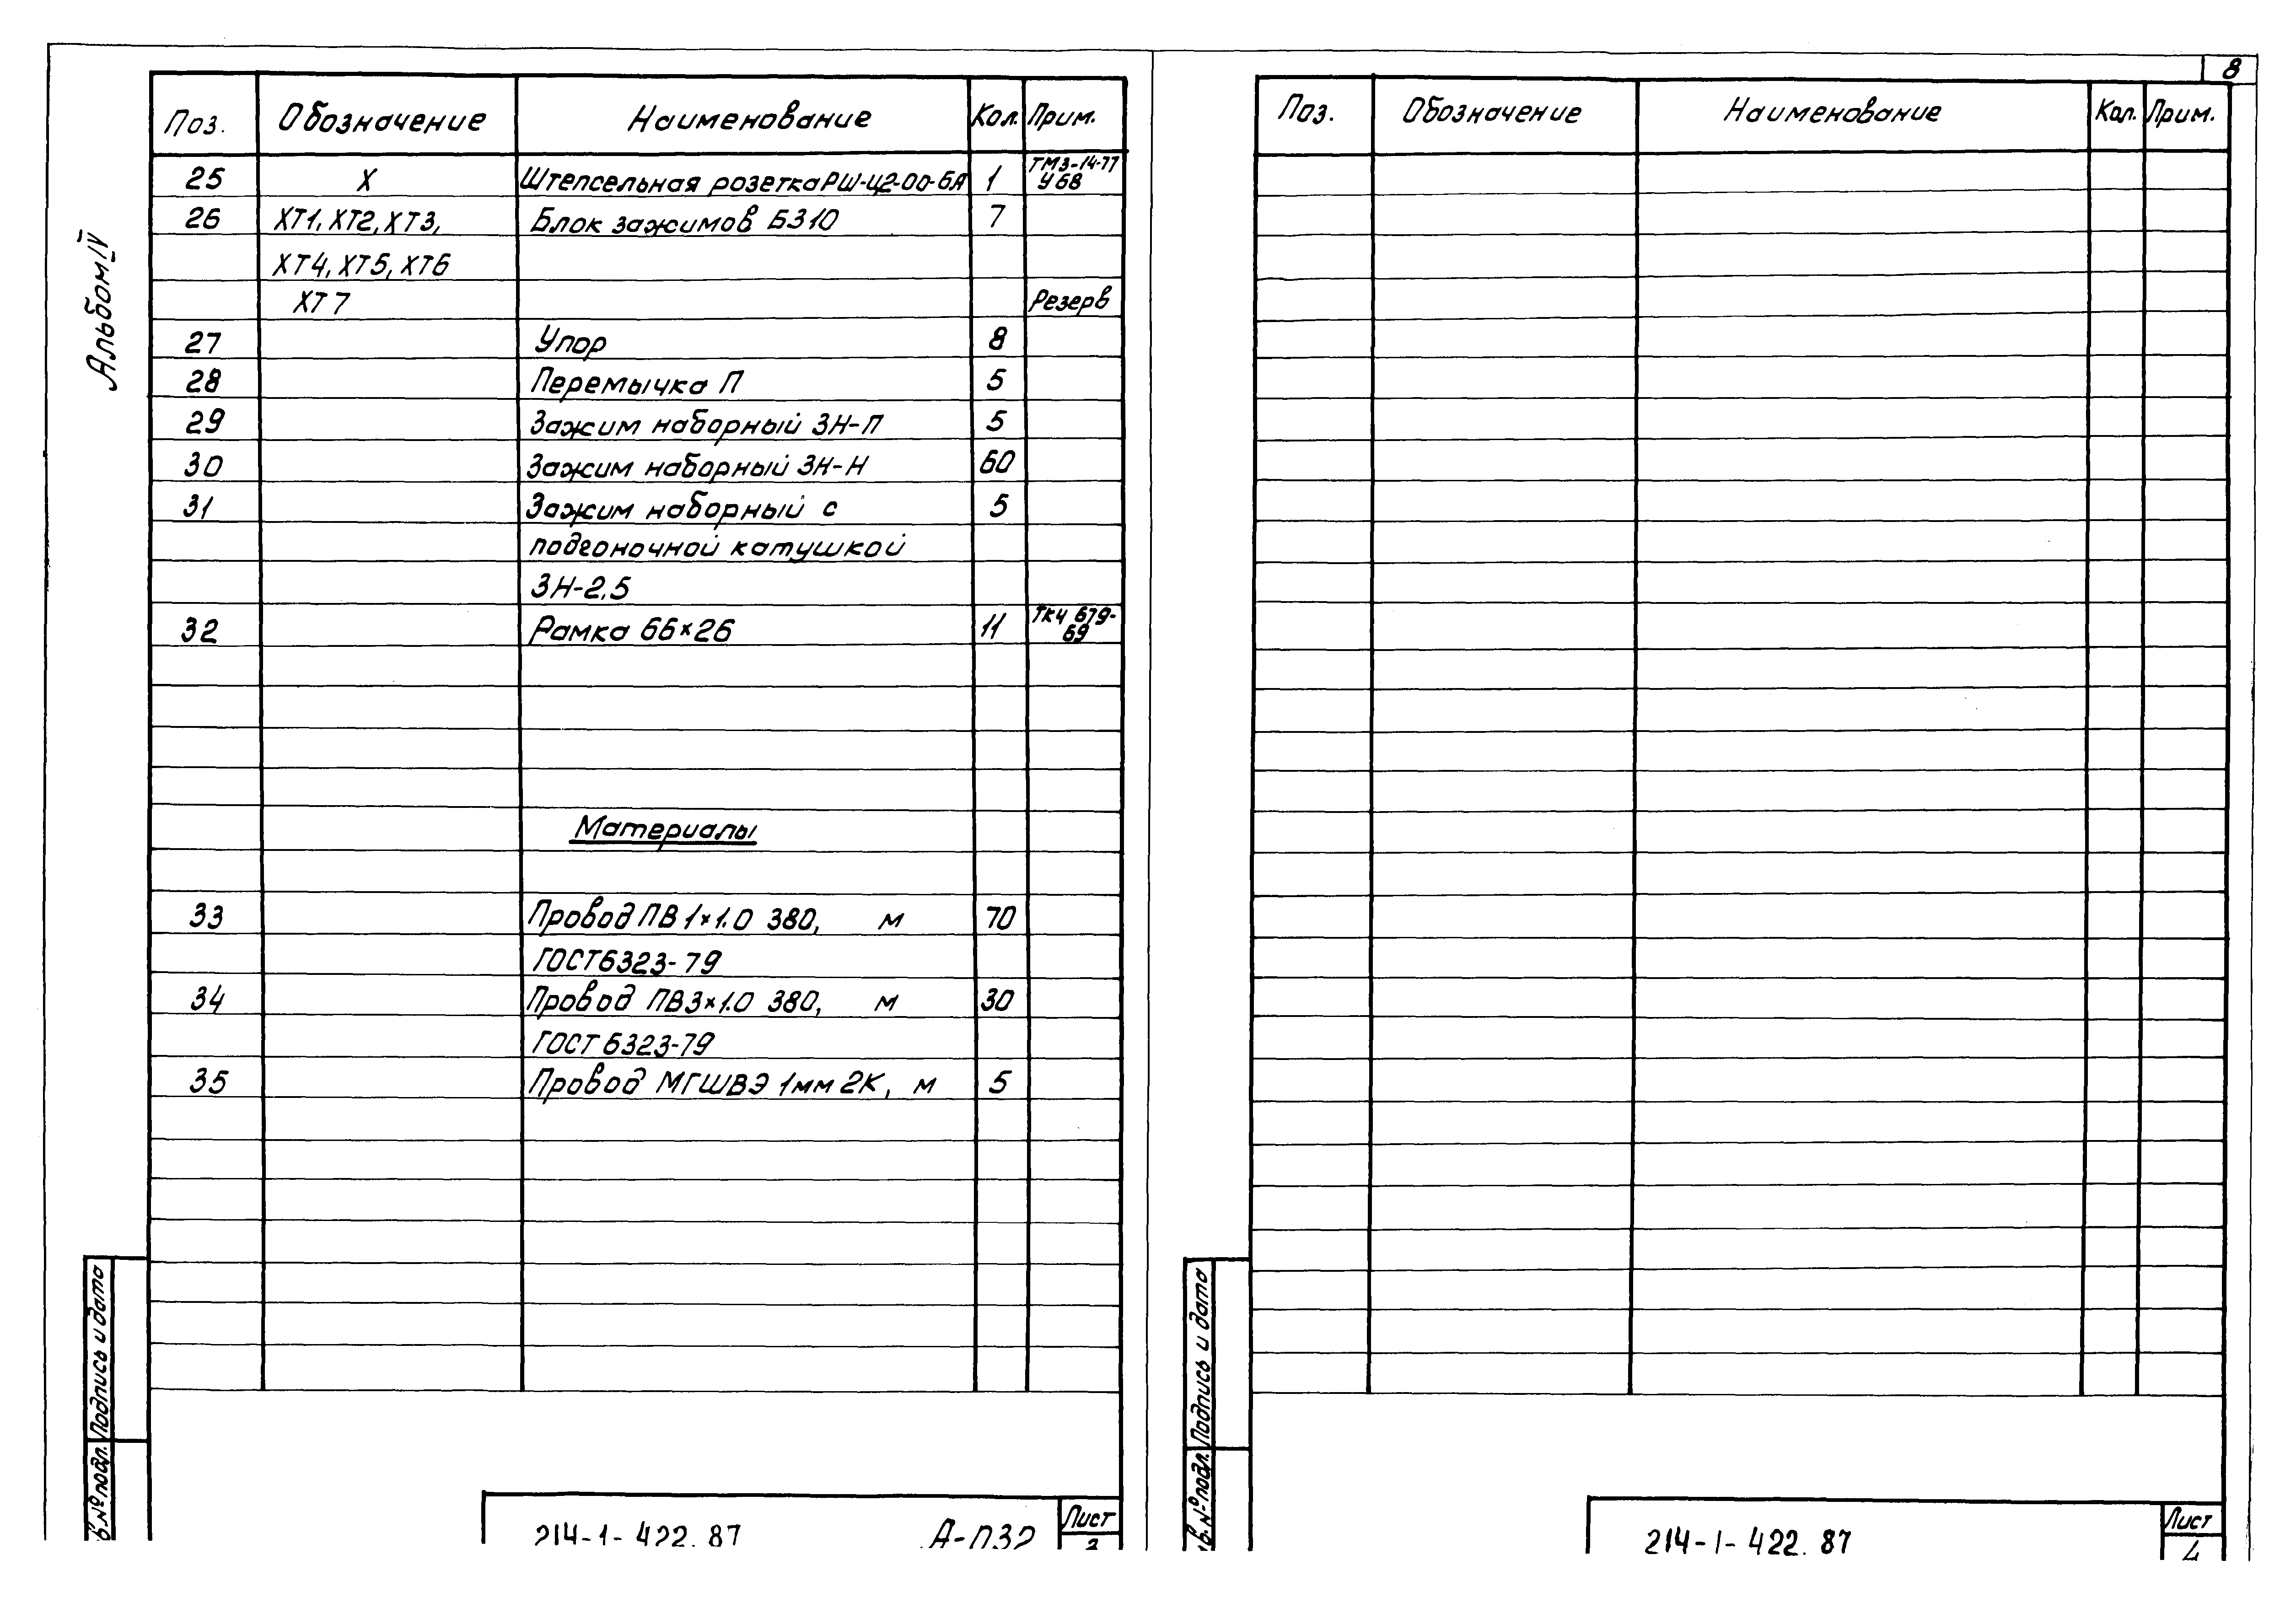 8
Альбом IV
Поз. Обозначение Наименование Кол. Прим.
25 X Штепсельная розетка РШ-Ц2-00-6А 1 ТМ3-14-77
У68
26 XT1, XT2, XT3, Блок зажимов БЗ10 7
XT4, XT5, XT6
XT7 Резерв
27 Упор 8
28 Перемычка П 5
29 Зажим наборный ЗН-П 5
30 Зажим наборный ЗН-Н 60
31 Зажим наборный с 5
подгоночной катушкой
ЗН-2.5
32 Рамка 66×26 11 ТК4 679-
69
Материалы
33 Провод ПВ 1×1.0 380, м 70
ГОСТ 6323-79
34 Провод ПВ3×1.0 380, м 30
ГОСТ 6323-79
35 Провод МГШВЭ 1мм 2К, м 5
Подпись и дата
№ подл.
214-1-422.87 Лист
3
Поз. Обозначение Наименование Кол. Прим.
Подпись и дата
№ подл.
214-1-422.87 Лист
4